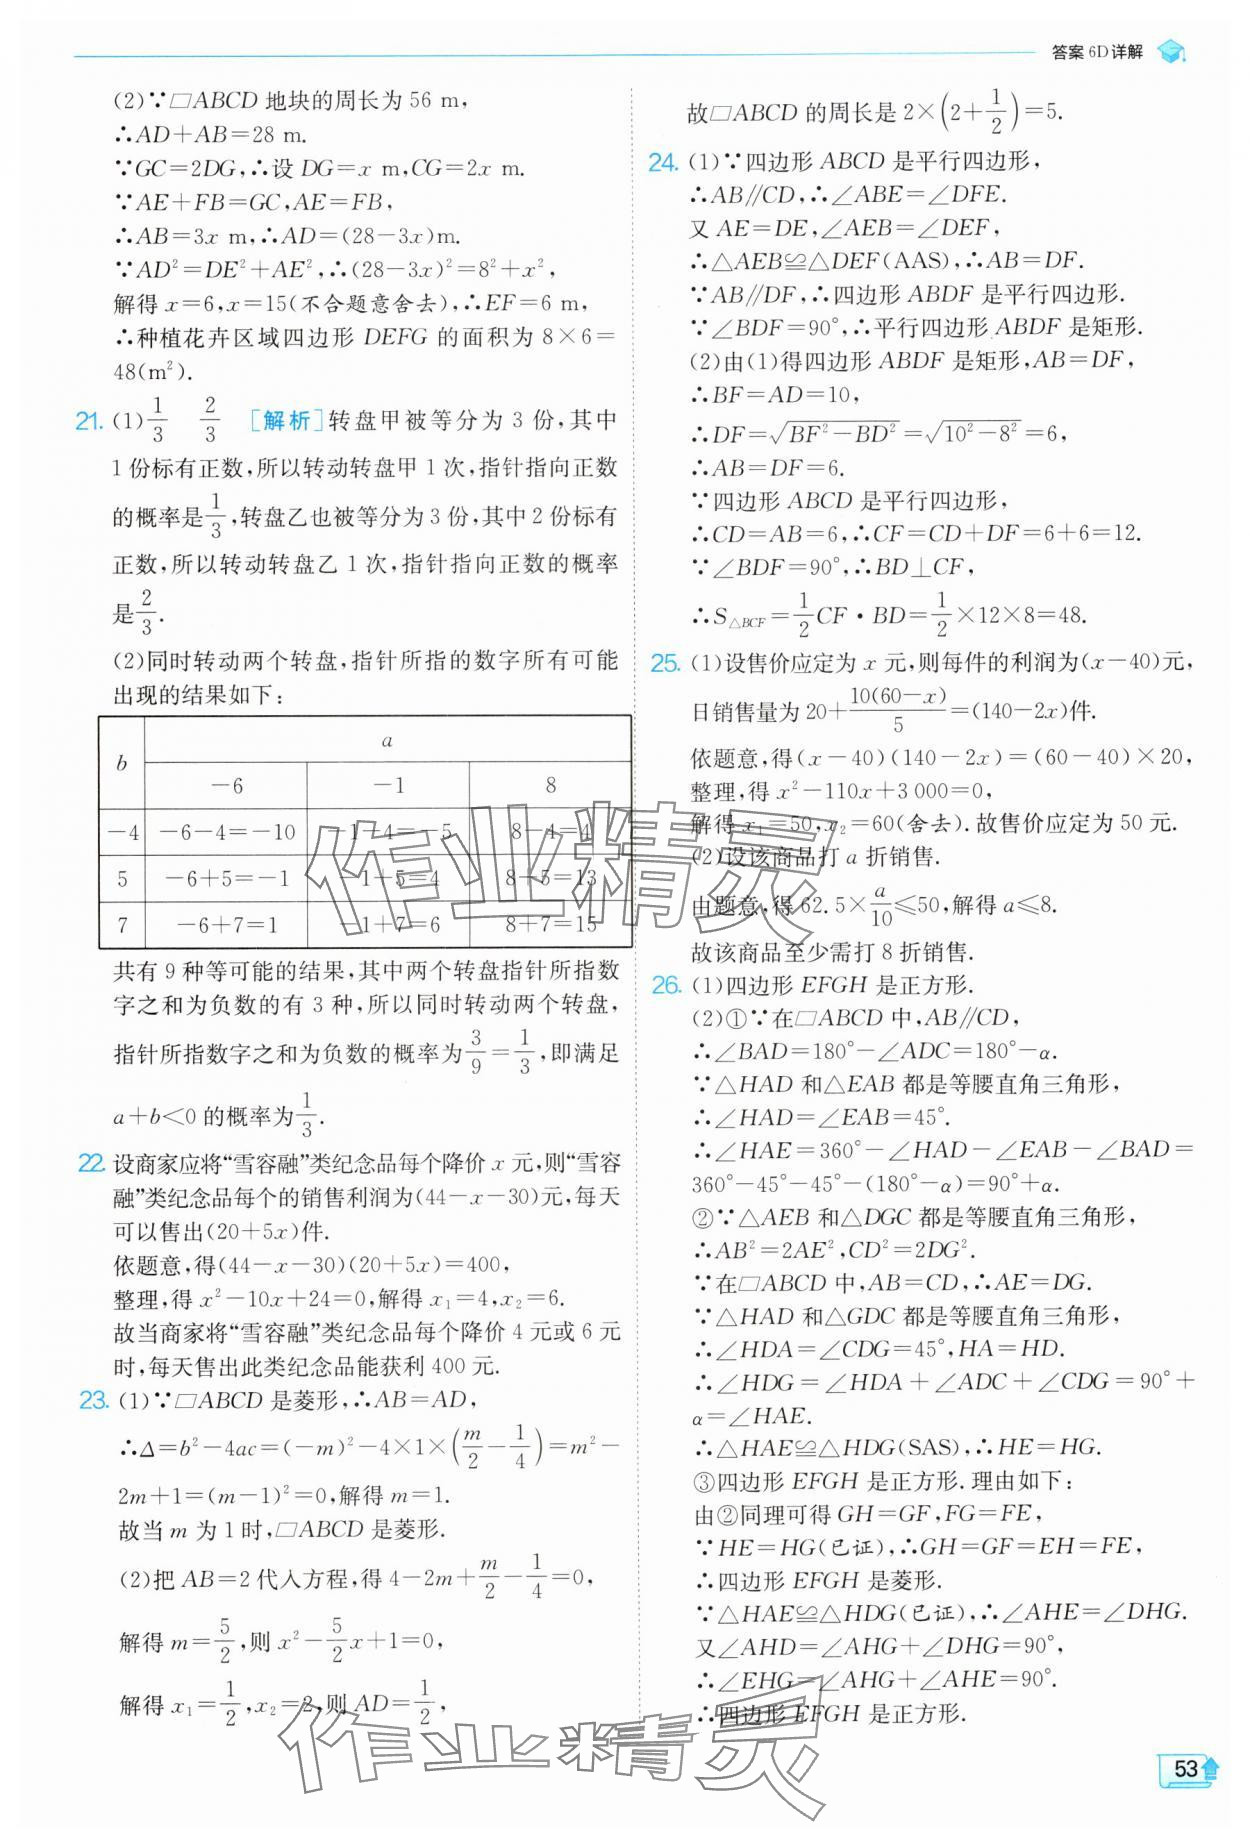 答案 6D 详解
(2)∵□ABCD 地块的周长为 56 m,
∴AD+AB=28 m.
∵GC=2DG,∴设 DG=x m,CG=2x m.
∵AE+FB=GC,AE=FB,
∴AB=3x m,∴AD=(28-3x)m.
∵AD²=DE²+AE²,∴(28-3x)²=8²+x²,
解得 x=6,x=15(不合题意舍去),∴EF=6 m,
∴种植花卉区域四边形 DEFG 的面积为 8×6=
48(m²).
21. (1)1/3 2/3 [解析]转盘甲被等分为 3 份,其中
1 份标有正数,所以转动转盘甲 1 次,指针指向正数
的概率是1/3,转盘乙也被等分为 3 份,其中 2 份标有
正数,所以转动转盘乙 1 次,指针指向正数的概率
是2/3.
(2)同时转动两个转盘,指针所指的数字所有可能
出现的结果如下:
b a
-6 -1 8
-4 -6-4=-10 -1-4=-5 8-4=4
5 -6+5=-1 -1+5=4 8+5=13
7 -6+7=1 -1+7=6 8+7=15
共有 9 种等可能的结果,其中两个转盘指针所指数
字之和为负数的有 3 种,所以同时转动两个转盘,
指针所指数字之和为负数的概率为3/9=1/3,即满足
a+b<0 的概率为1/3.
22. 设商家应将“雪容融”类纪念品每个降价 x 元,则“雪容
融”类纪念品每个的销售利润为(44-x-30)元,每天
可以售出(20+5x)件.
依题意,得(44-x-30)(20+5x)=400,
整理,得 x²-10x+24=0,解得 x₁=4,x₂=6.
故当商家将“雪容融”类纪念品每个降价 4 元或 6 元
时,每天售出此类纪念品能获利 400 元.
23. (1)∵□ABCD 是菱形,∴AB=AD,
∴Δ=b²-4ac=(-m)²-4×1×(m/2-1/4)=m²-
2m+1=(m-1)²=0,解得 m=1.
故当 m 为 1 时,□ABCD 是菱形.
(2)把 AB=2 代入方程,得 4-2m+m/2-1/4=0,
解得 m=5/2,则 x²-5/2x+1=0,
解得 x₁=1/2,x₂=2,则 AD=1/2,
故□ABCD 的周长是 2×(2+1/2)=5.
24. (1)∵四边形 ABCD 是平行四边形,
∴AB∥CD,∴∠ABE=∠DFE.
又 AE=DE,∠AEB=∠DEF,
∴△AEB≌△DEF(AAS),∴AB=DF.
∵AB∥DF,∴四边形 ABDF 是平行四边形.
∵∠BDF=90°,∴平行四边形 ABDF 是矩形.
(2)由(1)得四边形 ABDF 是矩形,AB=DF,
∴BF=AD=10,
∴DF=√(BF²-BD²)=√(10²-8²)=6,
∴AB=DF=6.
∵四边形 ABCD 是平行四边形,
∴CD=AB=6,∴CF=CD+DF=6+6=12.
∵∠BDF=90°,∴BD⊥CF,
∴S△BCF=1/2CF·BD=1/2×12×8=48.
25. (1)设售价应定为 x 元,则每件的利润为(x-40)元,
日销售量为 20+10(60-x)/5=(140-2x)件.
依题意,得(x-40)(140-2x)=(60-40)×20,
整理,得 x²-110x+3 000=0,
解得 x₁=50,x₂=60(舍去).故售价应定为 50 元.
(2)设该商品打 a 折销售.
由题意,得 62.5×a/10≤50,解得 a≤8.
故该商品至少需打 8 折销售.
26. (1)四边形 EFGH 是正方形.
(2)①∵在□ABCD 中,AB∥CD,
∴∠BAD=180°-∠ADC=180°-α.
∵△HAD 和△EAB 都是等腰直角三角形,
∴∠HAD=∠EAB=45°.
∴∠HAE=360°-∠HAD-∠EAB-∠BAD=
360°-45°-45°-(180°-α)=90°+α.
②∵△AEB 和△DGC 都是等腰直角三角形,
∴AB²=2AE²,CD²=2DG².
∵在□ABCD 中,AB=CD,∴AE=DG.
∵△HAD 和△GDC 都是等腰直角三角形,
∴∠HDA=∠CDG=45°,HA=HD.
∴∠HDG=∠HDA+∠ADC+∠CDG=90°+
α=∠HAE.
∴△HAE≌△HDG(SAS),∴HE=HG.
③四边形 EFGH 是正方形.理由如下:
由②同理可得 GH=GF,FG=FE,
∵HE=HG(已证),∴GH=GF=EH=FE,
∴四边形 EFGH 是菱形.
∵△HAE≌△HDG(已证),∴∠AHE=∠DHG.
又∠AHD=∠AHG+∠DHG=90°,
∴∠EHG=∠AHG+∠AHE=90°.
∴四边形 EFGH 是正方形.
作业精灵
作业精灵
53